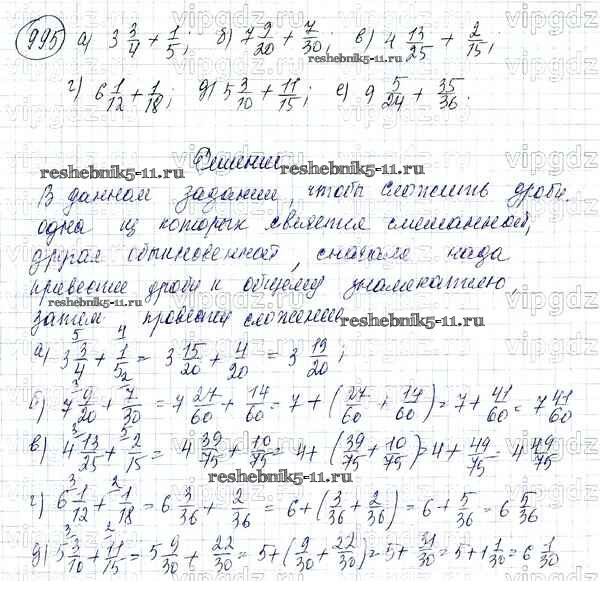 995 а) 3 3/4 + 1/5; б) 7 9/20 + 7/30; в) 4 13/25 + 2/15;
г) 6 1/12 + 1/18; д) 5 3/10 + 11/15; е) 9 5/24 + 35/36.
Решение
В данном задании, чтобы сложить дроби,
одна из которых является смешанной,
другая обыкновенной, сначала надо
привести дроби к общему знаменателю,
затем провести сложение
а) 3 3/4 + 1/5 = 3 15/20 + 4/20 = 3 19/20;
б) 7 9/20 + 7/30 = 7 27/60 + 14/60 = 7 + (27/60 + 14/60) = 7 + 41/60 = 7 41/60
в) 4 13/25 + 2/15 = 4 39/75 + 10/75 = 4 + (39/75 + 10/75) = 4 + 49/75 = 4 49/75
г) 6 1/12 + 1/18 = 6 3/36 + 2/36 = 6 + (3/36 + 2/36) = 6 + 5/36 = 6 5/36
д) 5 3/10 + 11/15 = 5 9/30 + 22/30 = 5 + (9/30 + 22/30) = 5 + 31/30 = 5 + 1 1/30 = 6 1/30
reshebnik5-11.ru
vipgdz.ru